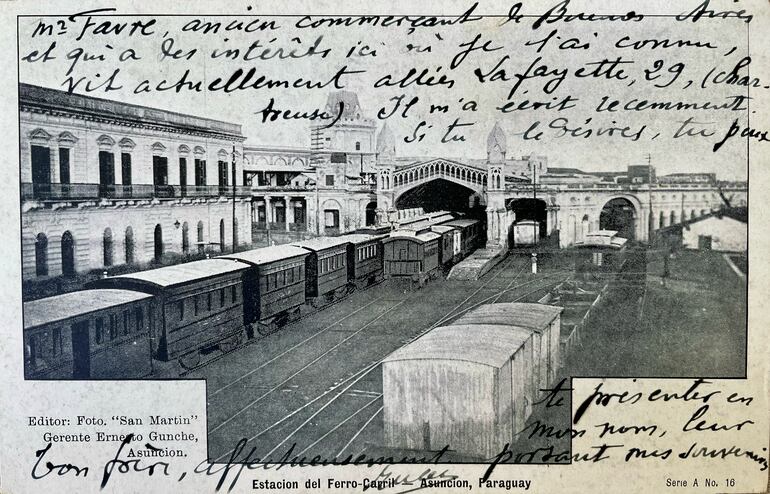 Mr Favre, ancien commerçant de Buenos Aires
et qui a des intérêts ici où je l'ai connu,
vit actuellement allées Lafayette, 29, (Char-
treuse) Il m'a écrit recemment
Si tu le désires, tu peux
te présenter en
mon nom, leur
portant mes souvenirs
Bon frère, affectueusement
Editor: Foto. "San Martin"
Gerente Ernesto Gunche,
Asuncion.
Estacion del Ferro-Carril Asuncion, Paraguay
Serie A No. 16